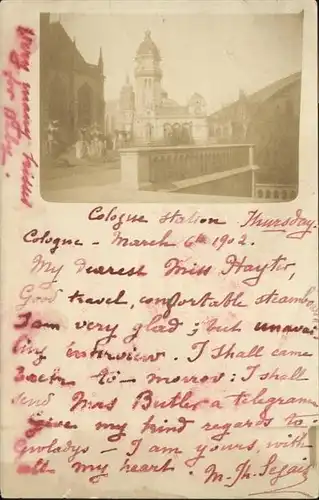 very many kisses
for Baby.
Cologne station Thursday.
Cologne - March 6th 1902.
My dearest Miss Hayter,
Good travel, comfortable steamboat
I am very glad; but unavai
ling interview. I shall came
back to-morrow: I shall
send Mrs Butler a telegramm
Give my kind regards to
Gwladys - I am yours, with
all my heart.